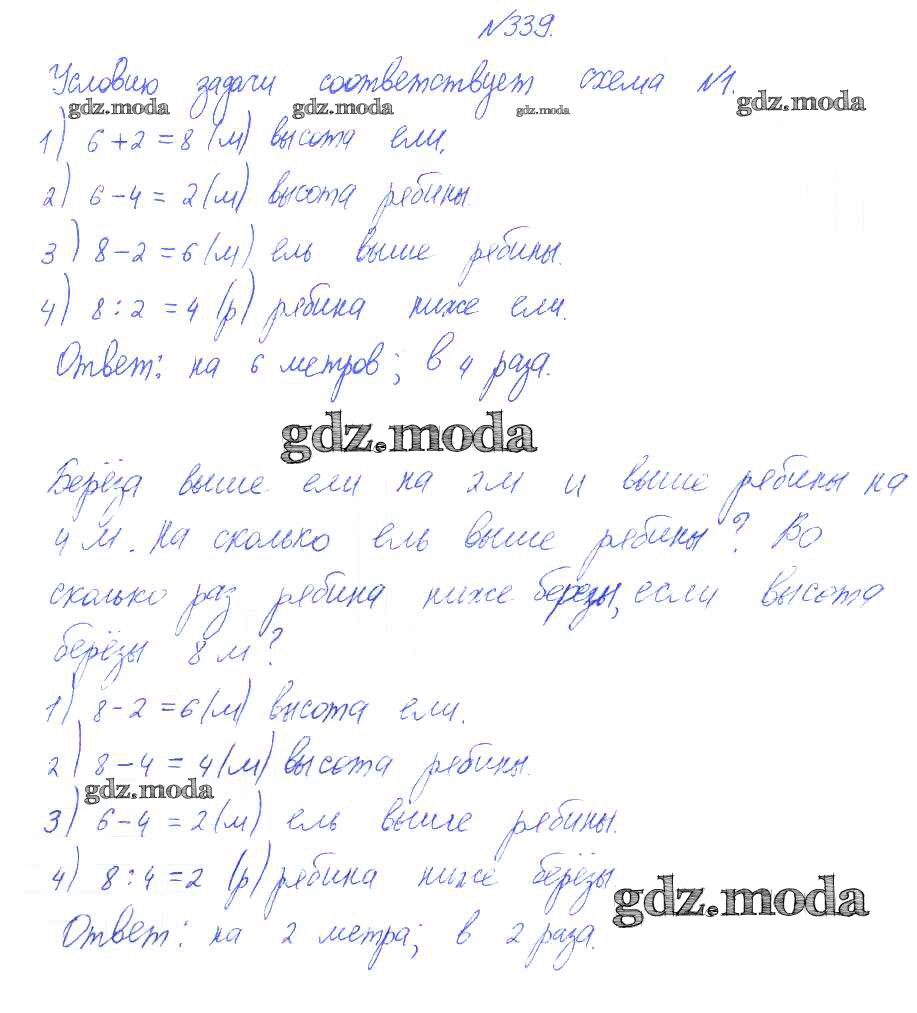 №339.
Условию задачи соответствует схема №1.
gdz.moda gdz.moda gdz.moda gdz.moda
1) 6+2=8 (м) высота ели.
2) 6-4=2(м) высота рябины.
3) 8-2=6(м) ель выше рябины.
4) 8:2=4 (р) рябина ниже ели.
Ответ: на 6 метров; в 4 раза.
gdz.moda
Берёза выше ели на 2м и выше рябины на
4 м. На сколько ель выше рябины? Во
сколько раз рябина ниже березы, если высота
берёзы 8 м?
1) 8-2=6(м) высота ели.
2) 8-4=4(м) высота рябины.
gdz.moda
3) 6-4=2(м) ель выше рябины.
4) 8:4=2 (р) рябина ниже берёзы.
gdz.moda
Ответ: на 2 метра; в 2 раза.